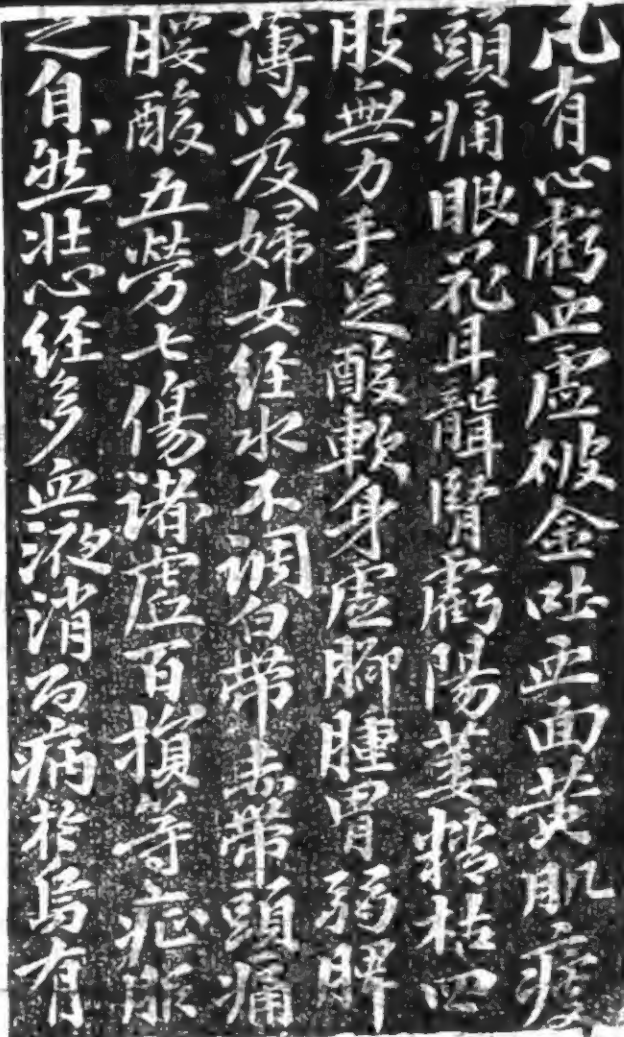 凡有心虧血虛破金吐血面黄肌瘦
頭痛眼花耳聾腎虧陽萎精枯四
肢無力手足酸軟身虛腳腫胃弱脾
薄以及婦女经水不調白帶赤帶頭痛
腰酸五勞七傷諸虛百損等症服
之自然壮心经多血液消百病於烏有